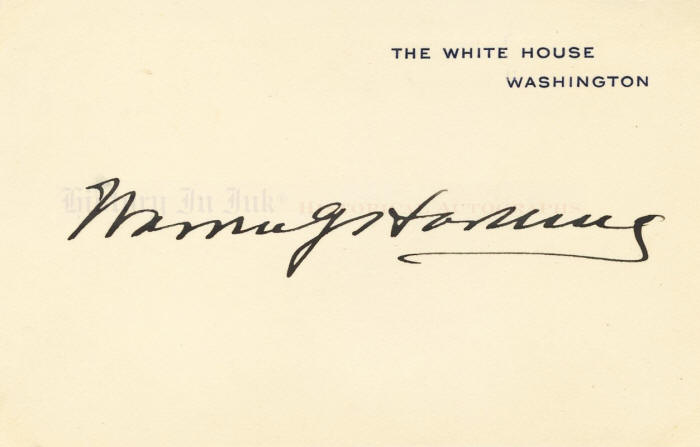 THE WHITE HOUSE
WASHINGTON
History In Ink® HISTORICAL AUTOGRAPHS
Warren G Harding